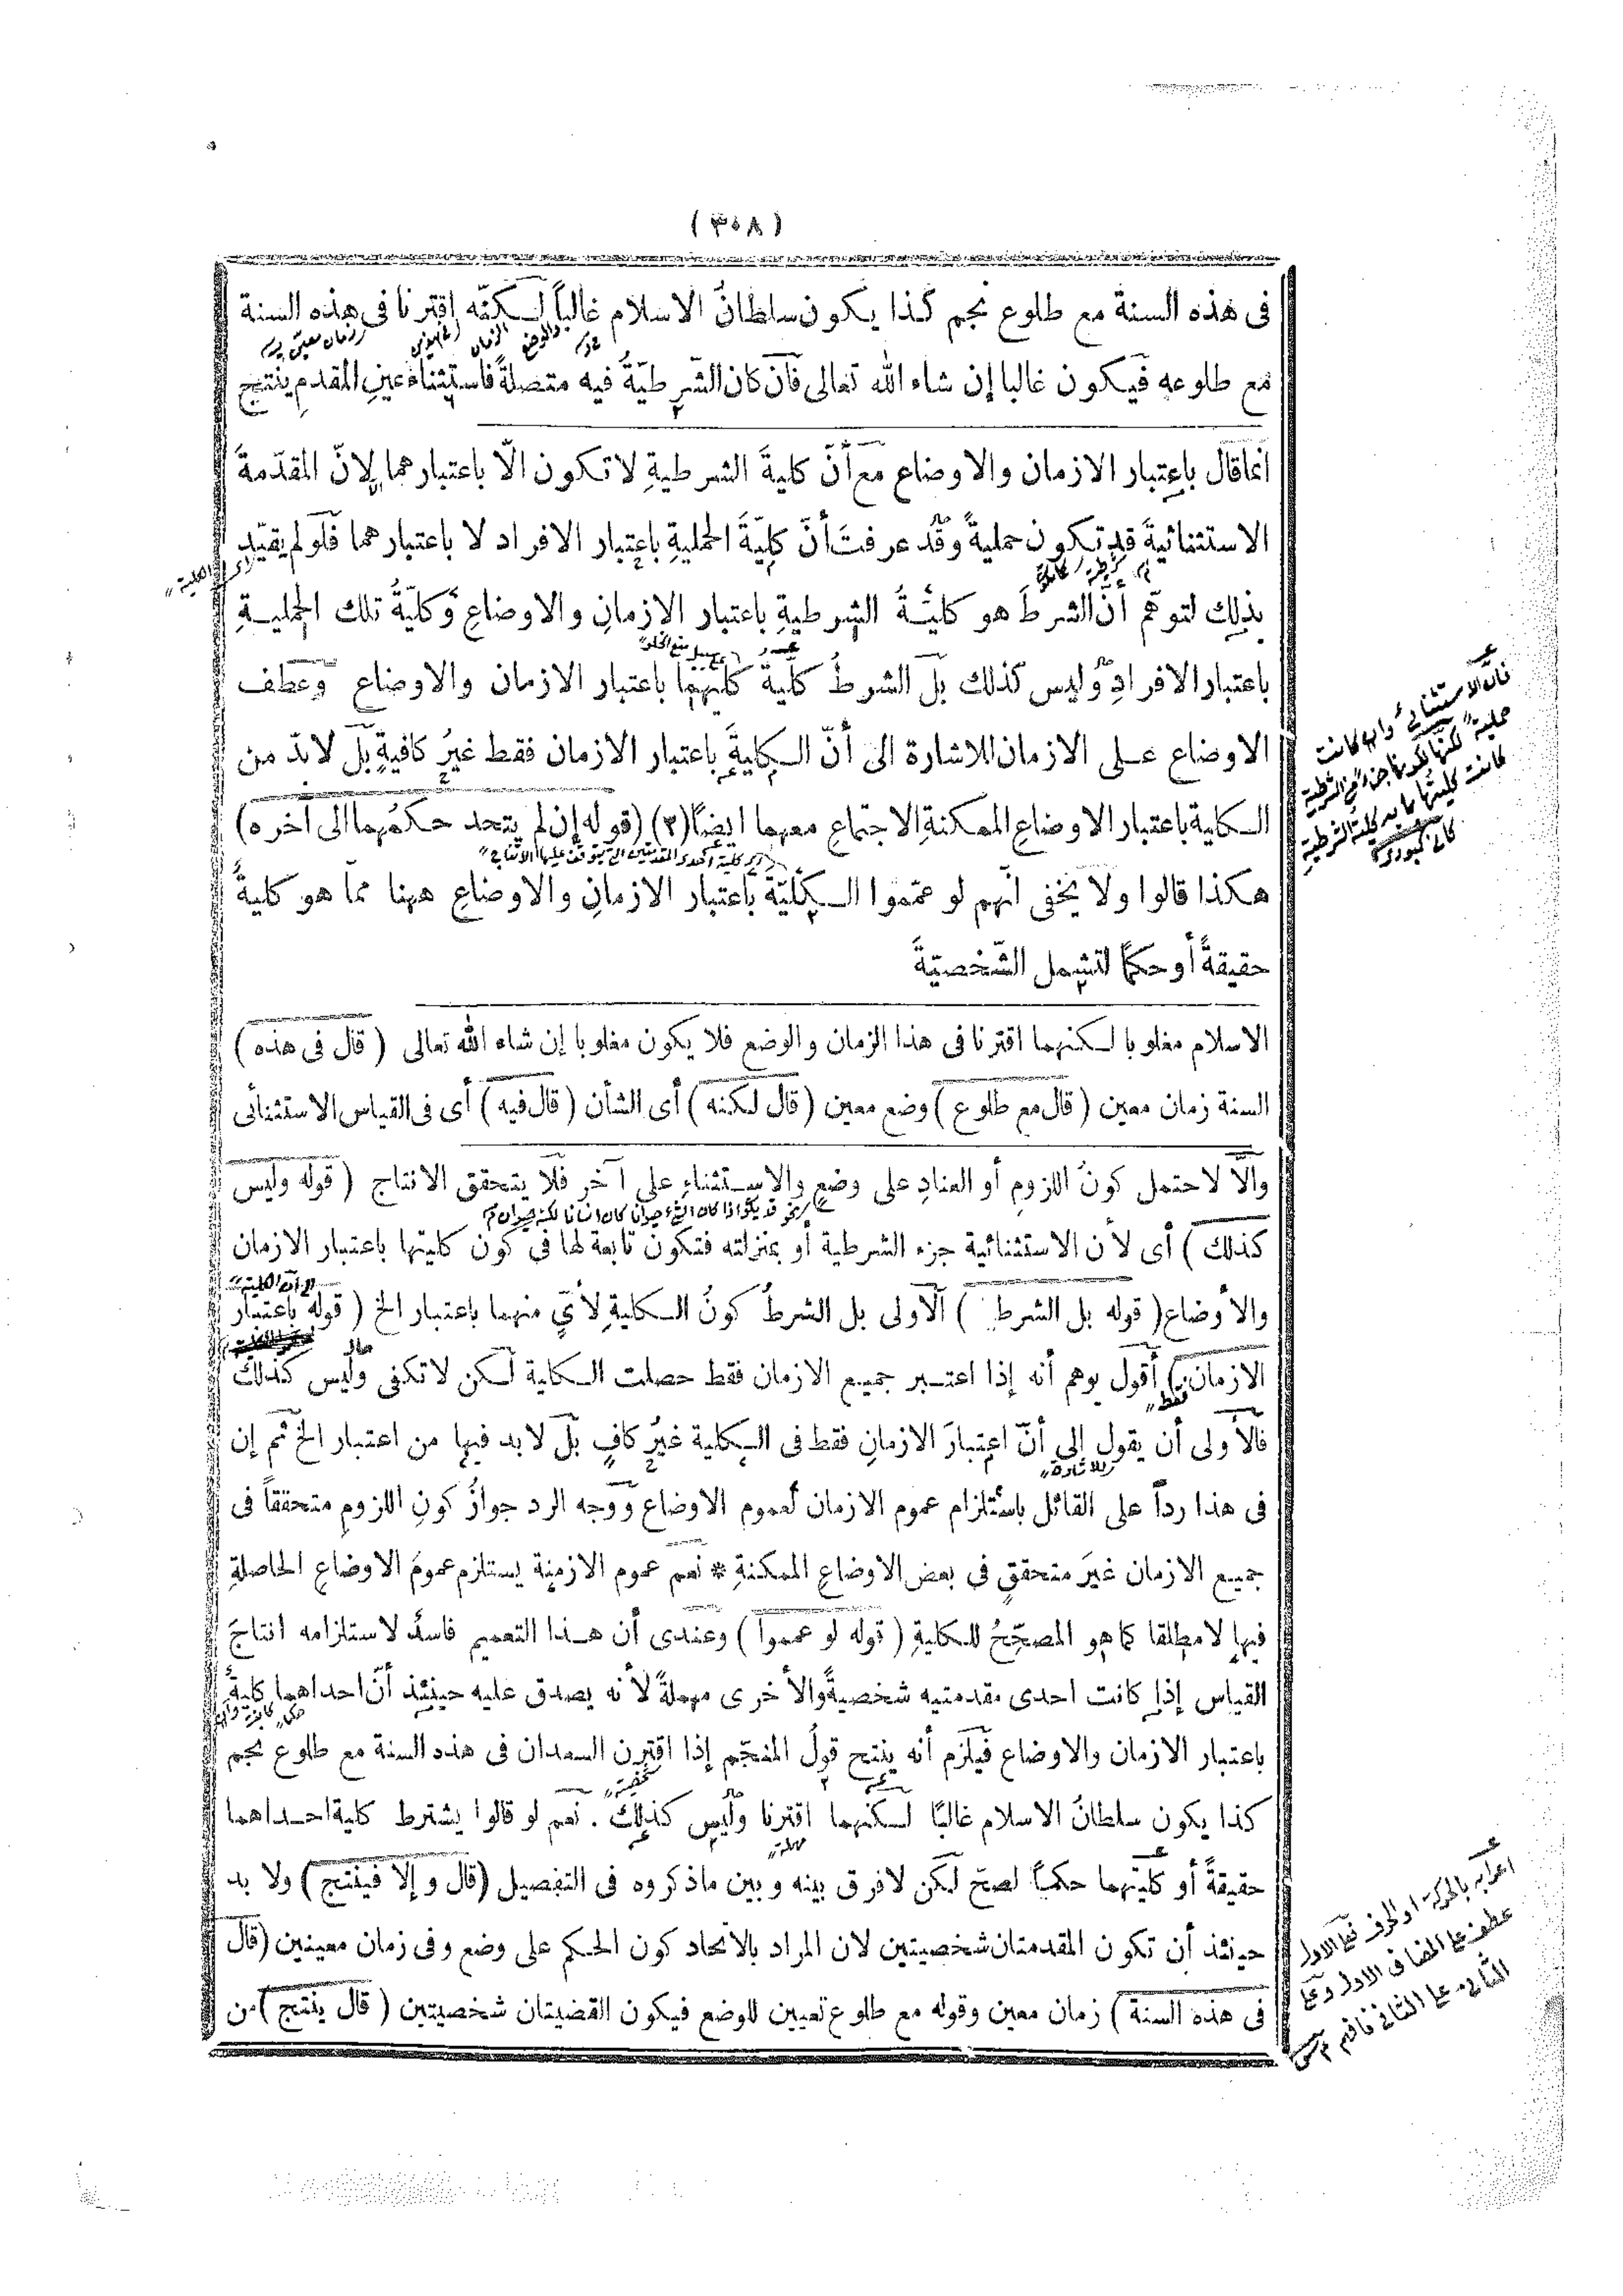 (٣٠٨)
فى هذه السنة مع طلوع نجم كذا يكون سلطانُ الاسلام غالباً لكنّه اقترنا فى هذه السنة
مع طلوعه فيكون غالبا إن شاء الله تعالى فان كان الشّرطيّةُ فيه متصلةً فاستثناء عينِ المقدمِ ينتج
انما قال باعتبار الازمان والاوضاع مع أنّ كليةَ الشرطيةِ لا تكون الّا باعتبارهما لِانّ المقدّمةَ
الاستثنائيةَ قد تكون حمليةً وقد عرفتَ أنّ كليّةَ الحمليةِ باعتبار الافراد لا باعتبارهما فلو لم يقيّد
بذلك لتوهّم أنّ الشرطَ هو كليّةُ الشرطيةِ باعتبار الازمانِ والاوضاعِ وكليّةُ تلك الحمليةِ
باعتبار الافرادِ وليس كذلك بل الشرطُ كليّة كليهما باعتبار الازمان والاوضاع وعطف
الاوضاع على الازمان للاشارة الى أنّ الكليةَ باعتبار الازمان فقط غيرُ كافيةٍ بل لابدّ من
الكلية باعتبار الاوضاعِ الممكنةِ الاجتماعِ معهما ايضًا (٣) (قوله إن لم يتحد حكمُهما الى آخره)
هكذا قالوا ولا يخفى انّهم لو عمّموا الكلّيّةَ باعتبار الازمانِ والاوضاعِ ههنا ممّا هو كليةً
حقيقةً أو حكمًا لتشمل الشّخصيّةَ
الاسلام مغلوبا لكنهما اقترنا فى هذا الزمان والوضع فلا يكون مغلوبا إن شاء الله تعالى (قال فى هذه)
السنة زمان معين (قال مع طلوع) وضع معين (قال لكنه) أى الشأن (قال فيه) أى فى القياس الاستثنائى
والّا لاحتمل كونُ اللزومِ أو العنادِ على وضعٍ والاستثناءِ على آخر فلا يتحقق الانتاج (قوله وليس
كذلك) أى لأن الاستثنائية جزء الشرطية أو بمنزلته فتكون تابعة لها فى كون كليتها باعتبار الازمان
والأوضاع (قوله بل الشرط) الاولى بل الشرطُ كونُ الكليةِ لأىٍّ منهما باعتبار الخ (قوله باعتبار
الازمان) أقول يوهم أنه إذا اعتبر جميع الازمان فقط حصلت الكلية لكن لا تكفى وليس كذلك
فالأولى أن يقول إلى أنّ اعتبارَ الازمانِ فقط فى الكلية غيرُ كافٍ بل لا بد فيها من اعتبار الخ ثم إن
فى هذا رداً على القائل باستلزام عموم الازمان لعموم الاوضاع ووجه الرد جوازُ كونِ اللزومِ متحققاً فى
جميع الازمان غيرَ متحققٍ فى بعض الاوضاعِ الممكنةِ * نعم عموم الازمنة يستلزم عمومَ الاوضاعِ الحاصلةِ
فيها لا مطلقا كما هو المصحِّحُ للكليةِ (قوله لو عمموا) وعندى أن هذا التعميم فاسدٌ لاستلزامه انتاجَ
القياس إذا كانت احدى مقدمتيه شخصيةً والأخرى مهملةً لأنه يصدق عليه حينئذ أنّ احداهما كليةٌ
باعتبار الازمان والاوضاع فيلزم أنه ينتج قولُ المنجّم إذا اقترن السعدان فى هذه السنة مع طلوع نجم
كذا يكون سلطانُ الاسلام غالبًا لكنهما اقترنا وليس كذلك . نعم لو قالوا يشترط كلية احداهما
حقيقةً أو كليّتهما حكماً لصحّ لكن لا فرق بينه وبين ما ذكروه فى التفصيل (قال وإلا فينتج) ولا بد
حينئذ أن تكون المقدمتان شخصيتين لان المراد بالاتحاد كون الحكم على وضع وفى زمان معينين (قال
فى هذه السنة) زمان معين وقوله مع طلوع تعيين للوضع فيكون القضيتان شخصيتين (قال ينتج) من